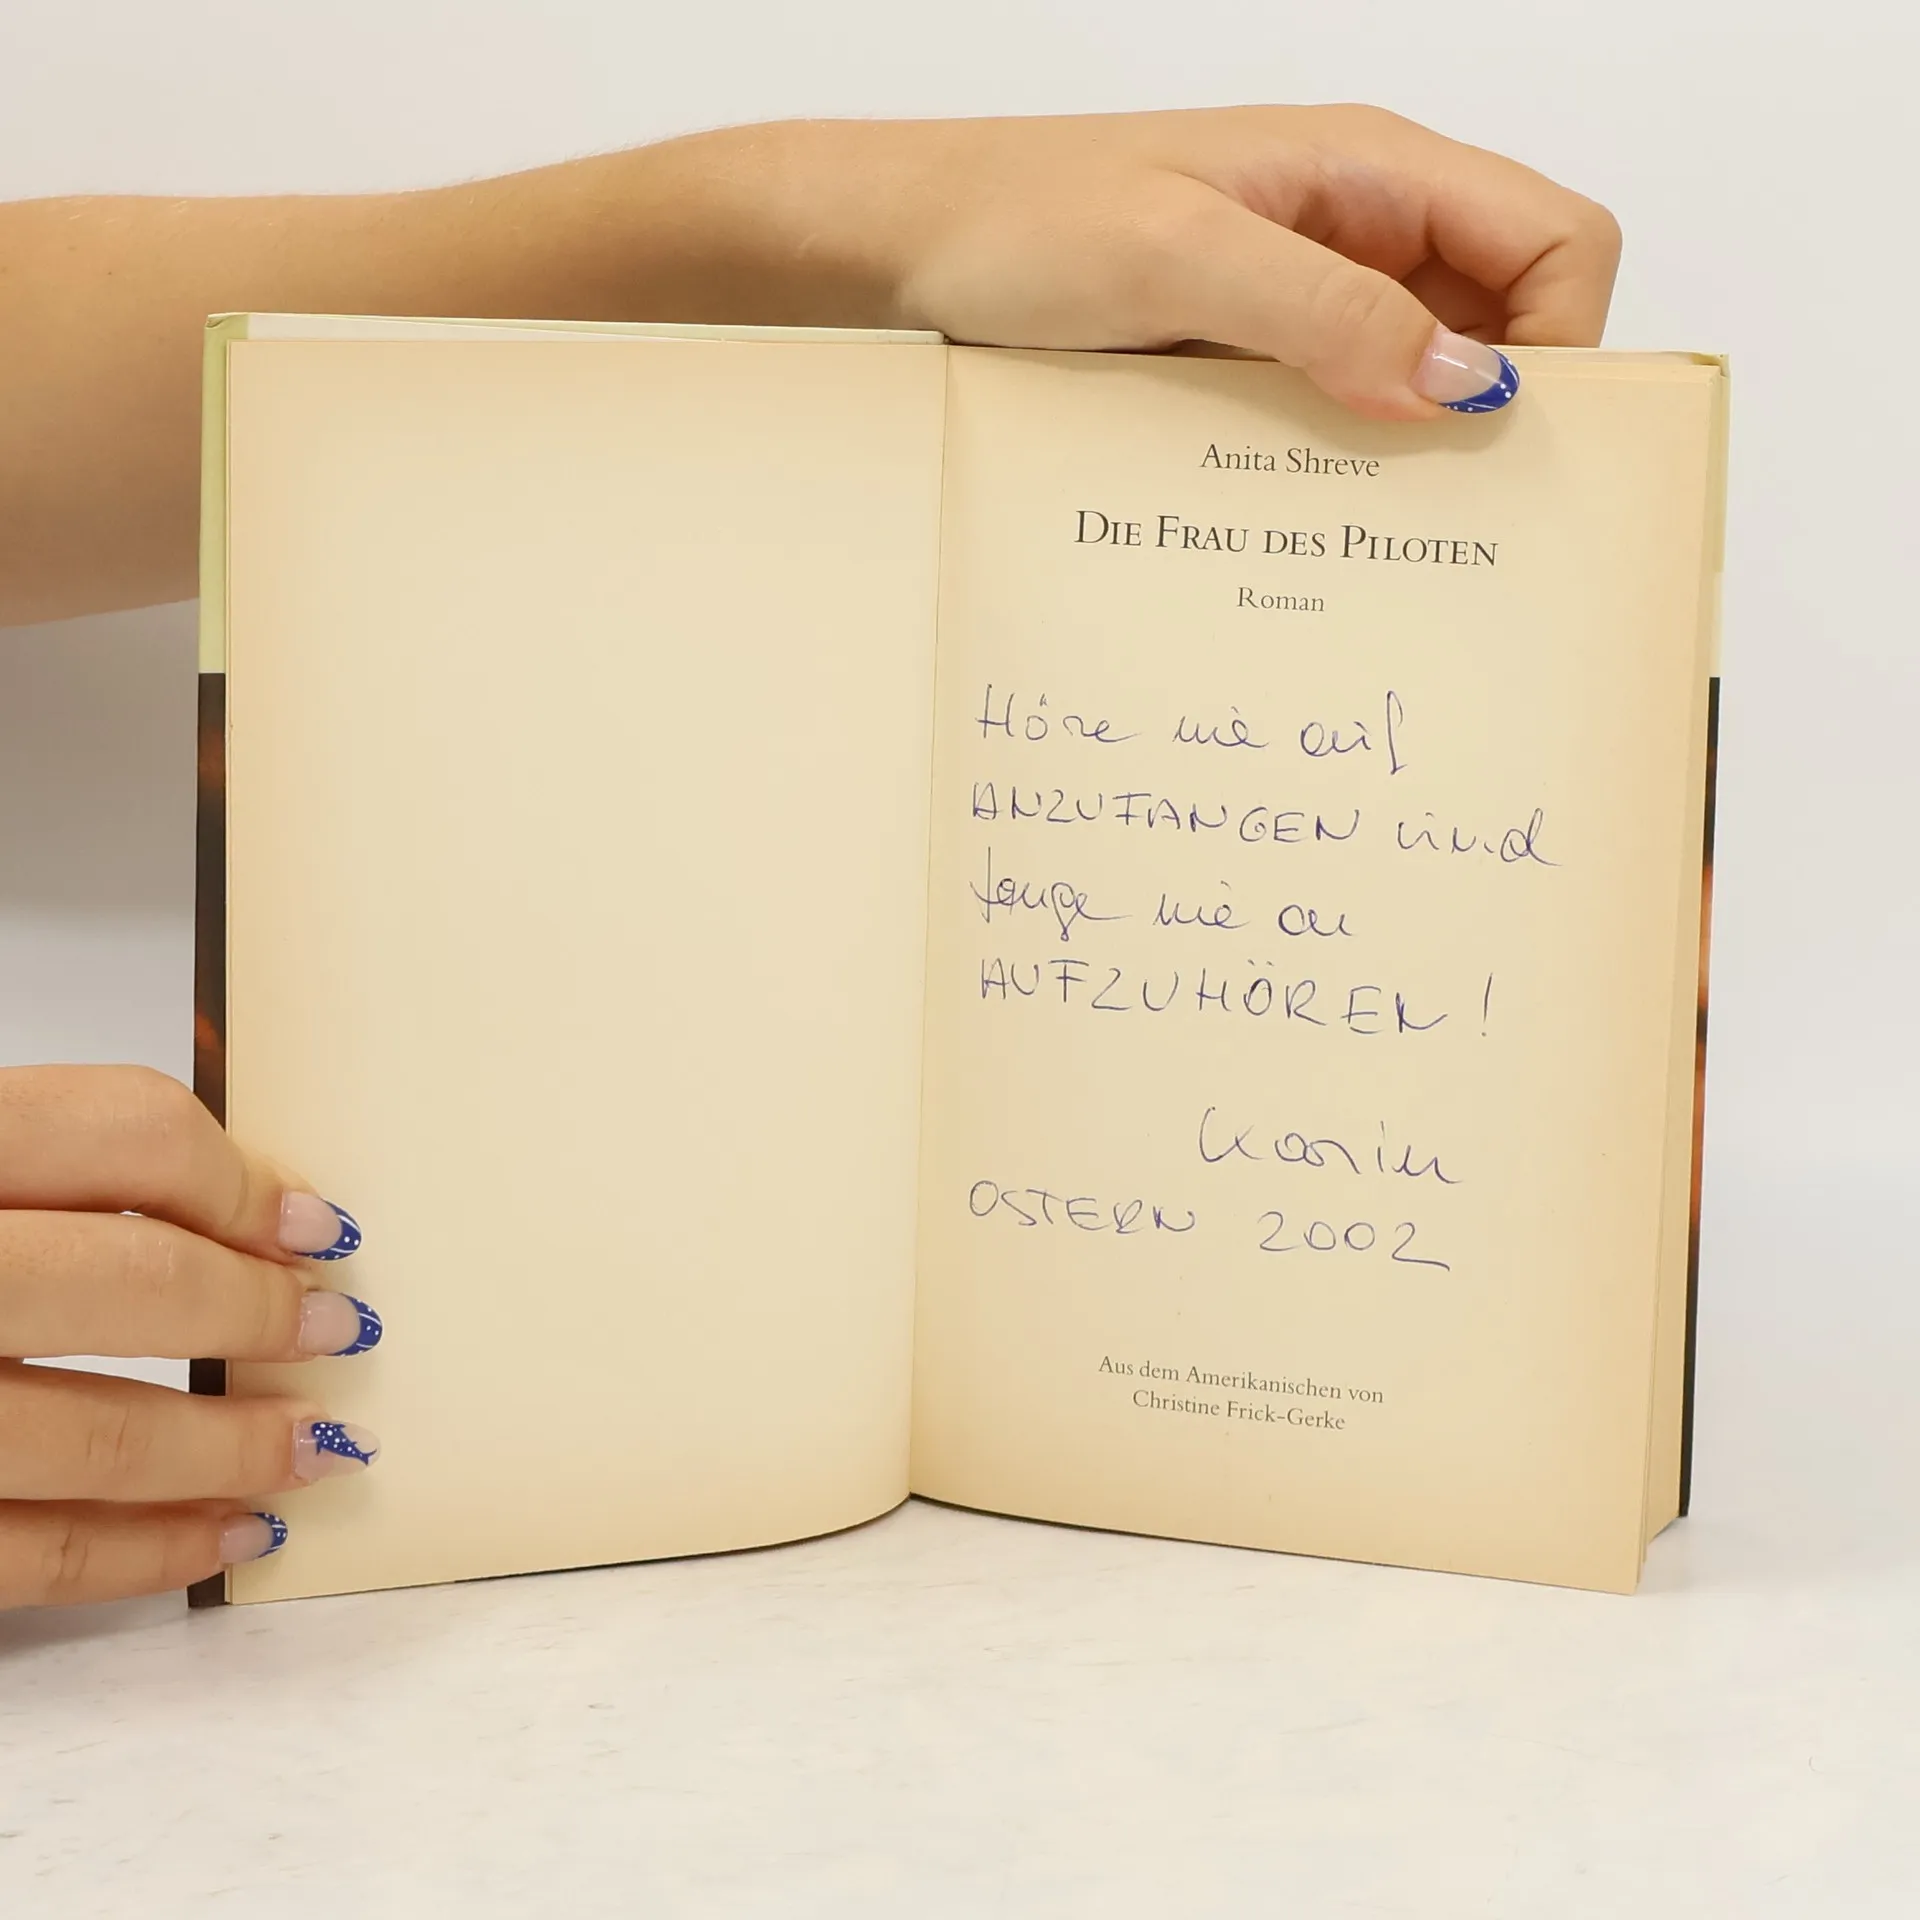 Anita Shreve
DIE FRAU DES PILOTEN
Roman
Höre nie auf
ANZUFANGEN und
fange nie an
AUFZUHÖREN!
Karin
OSTERN 2002
Aus dem Amerikanischen von
Christine Frick-Gerke